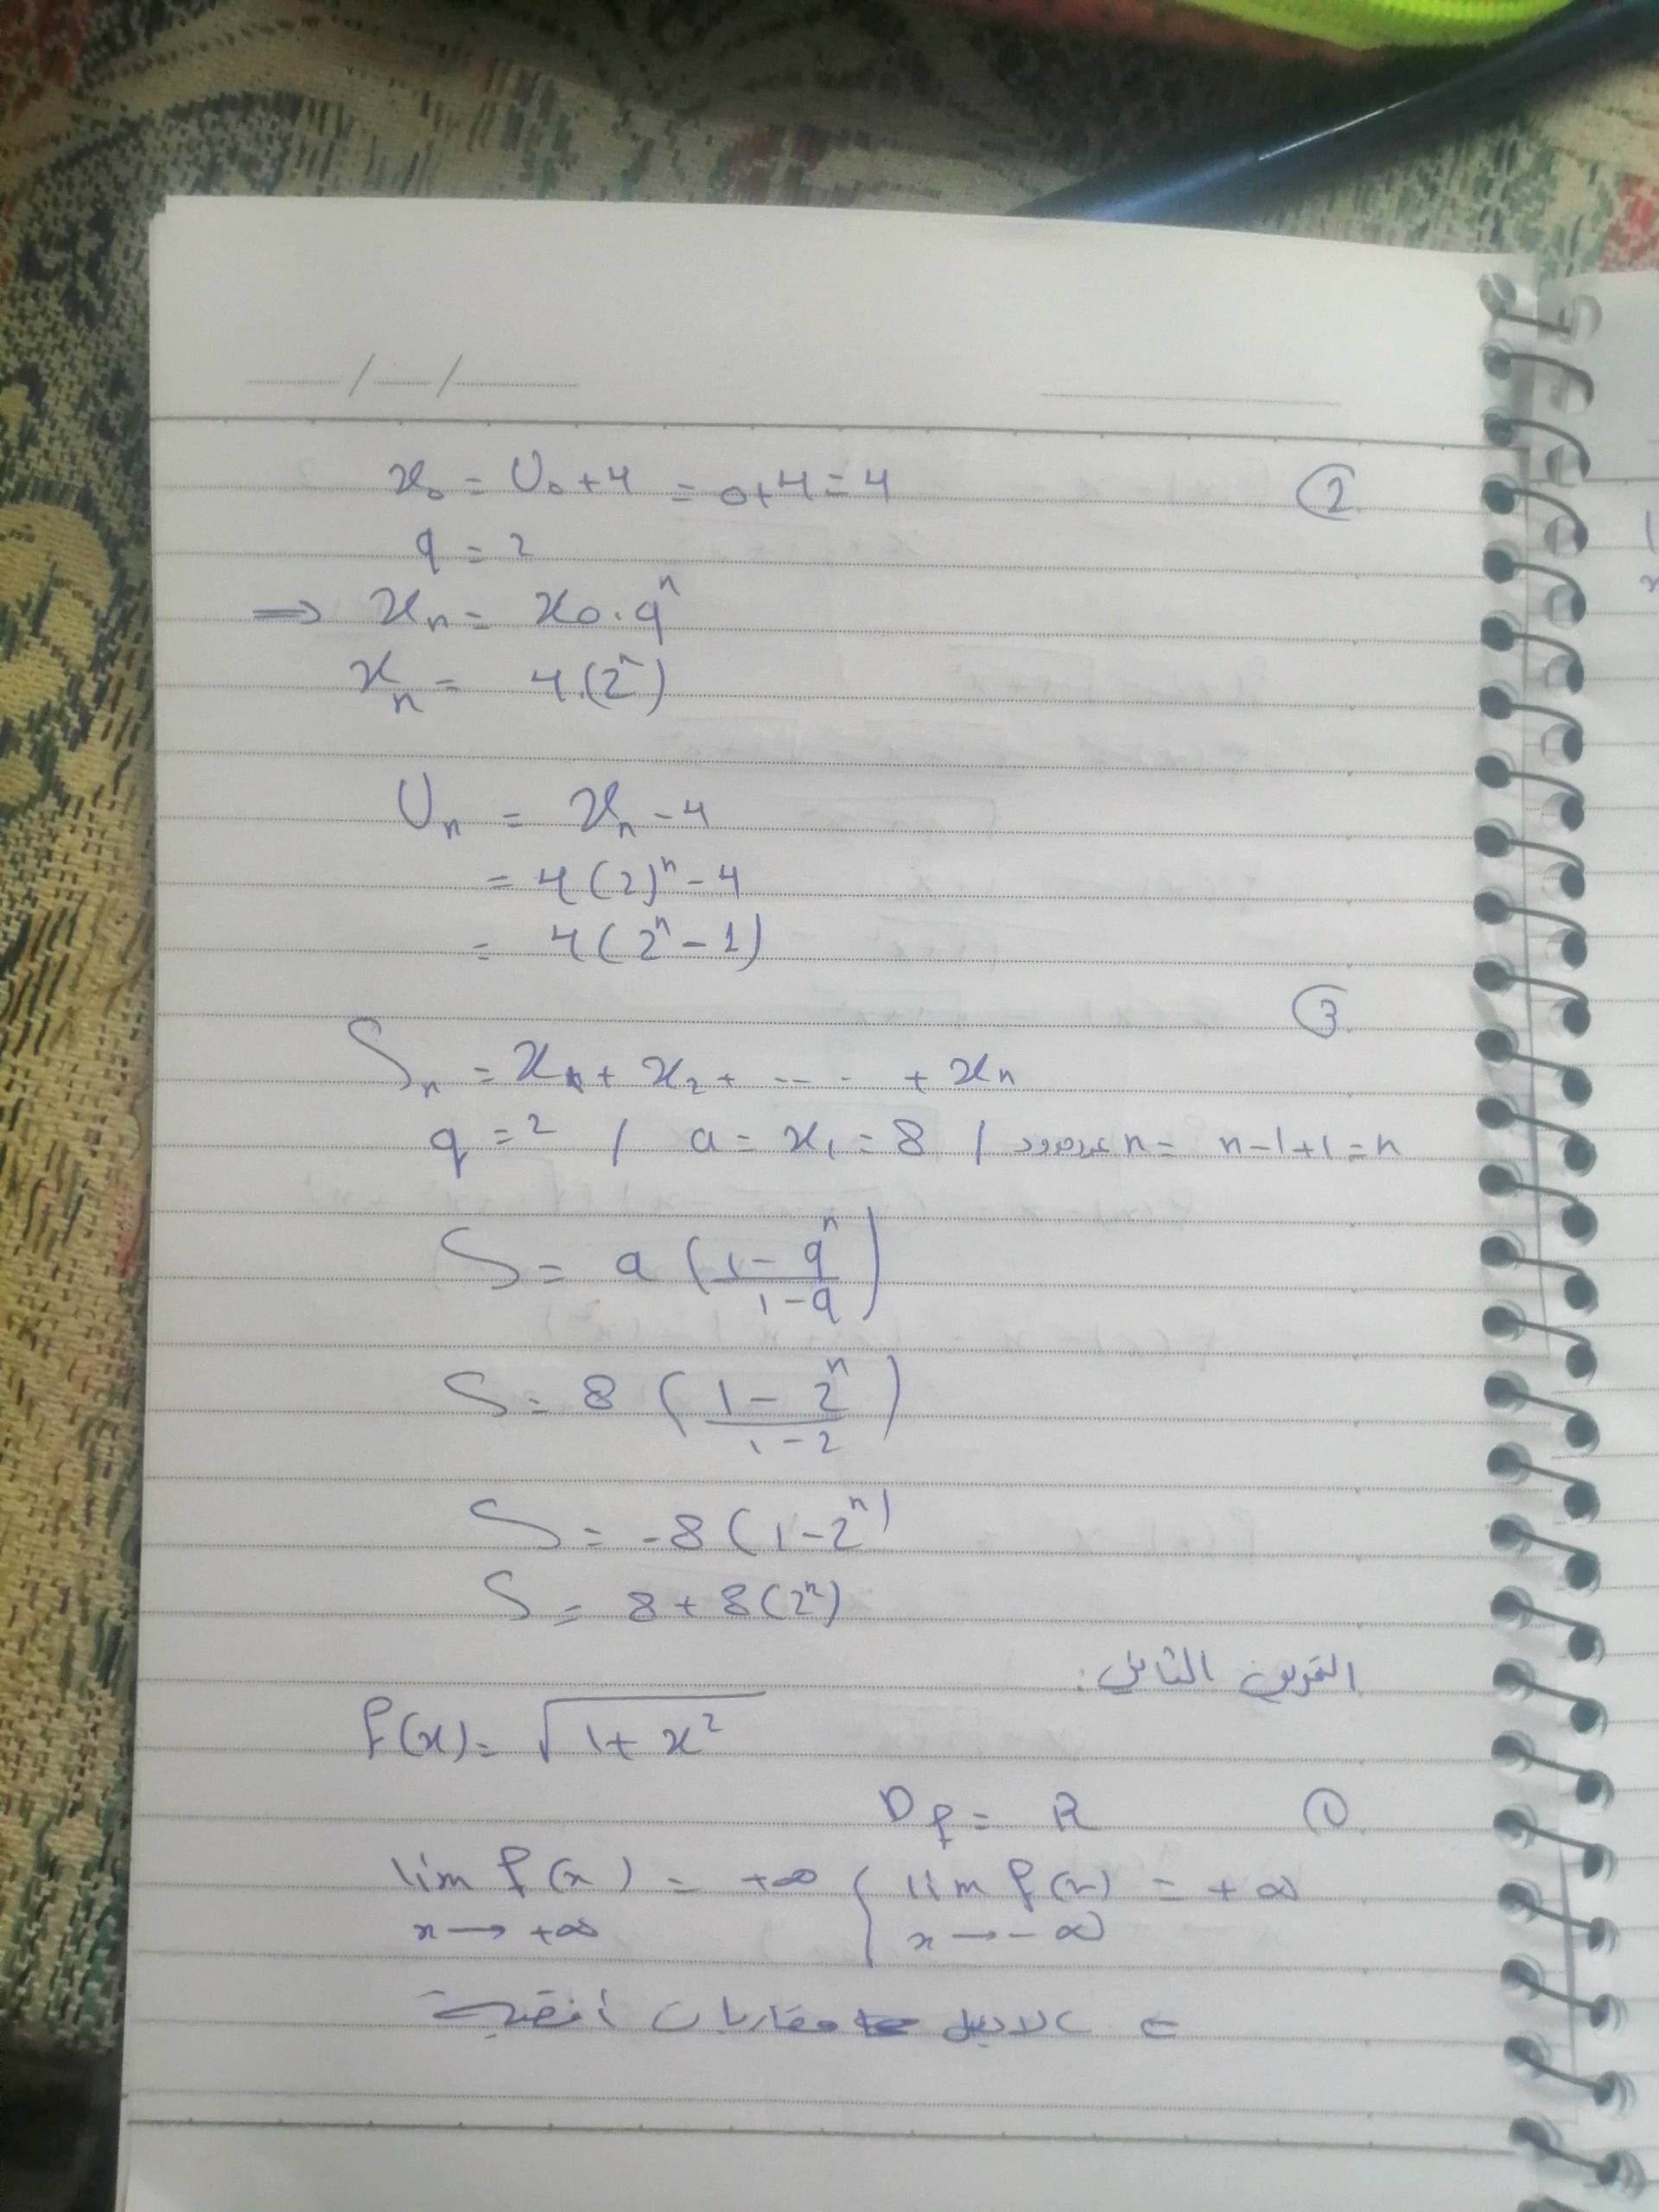 ②
x₀ = U₀ + 4 = 0 + 4 = 4
q = 2
⇒ xₙ = x₀ . qⁿ
xₙ = 4.(2ⁿ)
Uₙ = xₙ - 4
= 4(2)ⁿ - 4
= 4(2ⁿ - 1)
③
Sₙ = x₁ + x₂ + ..... + xₙ
q = 2 / a = x₁ = 8 / n = n-1+1 = n
S = a (1 - qⁿ / 1 - q)
S = 8 (1 - 2ⁿ / 1 - 2)
S = -8 (1 - 2ⁿ)
S = 8 + 8(2ⁿ)
التمرين الثاني:
f(x) = √(1 + x²)
① Df = R
lim f(x) = +∞ { lim f(x) = +∞
x → +∞ { x → -∞
مقاربات أفقية